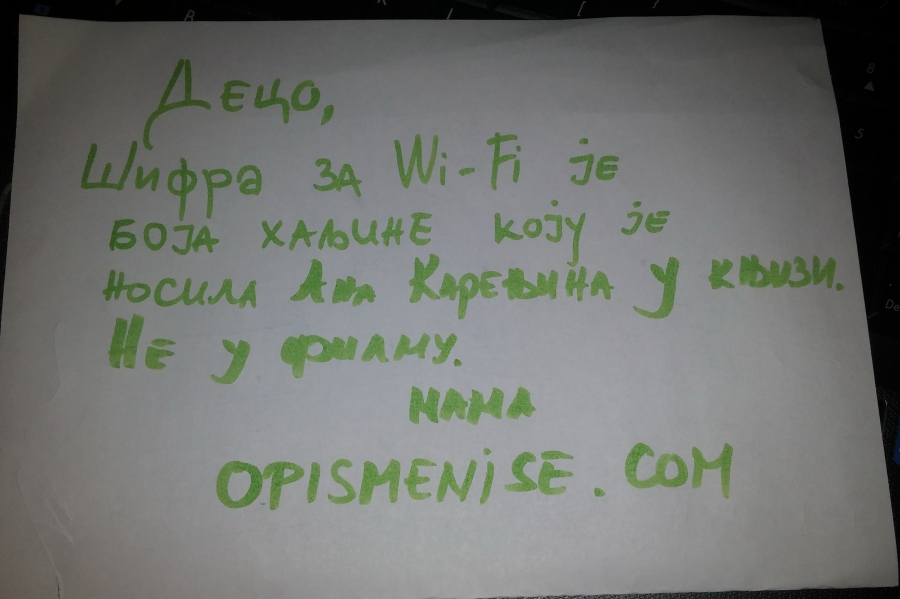 Децо,
Шифра за Wi-Fi је
БОЈА ХАЉИНЕ коју је
носила Ана Карењина у књизи.
Не у филму.
мама
OPISMENiSE.COM